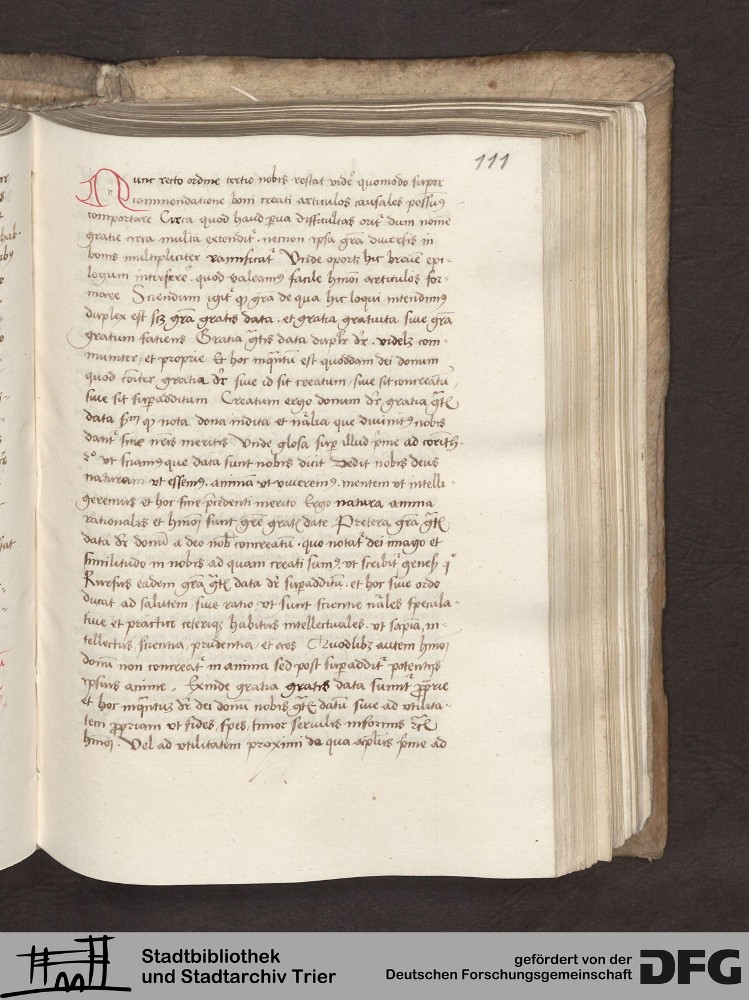 111
Nunc recto ordine tertio nobis restat videre quomodo super
commendatione boni creati articulos causales possumꝰ
comportare Circa quod haud parua difficultas oritur dum nomen
gratie circa multa extenditur necnon ipsa gratia diuersis in
bonis multipliciter ramificatur Unde oportet hic breuem epi-
logum interserere quod valeamꝰ facile huiusmodi articulos for-
mare Sciendum igitur quod gratia de qua hic loqui intendimꝰ
duplex est scilicet gratia gratis data et gratia gratuita siue gratia
gratum faciens Gratia gratis data dupliciter dicitur videlicet com-
muniter et proprie Et hoc inquantum est quoddam dei donum
quod communiter gratia dicitur siue id sit creatum siue sit concreatum
siue sit superadditum Creatum ergo donum dicitur gratia gratis
data secundum quod nota dona indita et naturalia que diuinitꝰ nobis
dantur sine nostris meritis Unde glosa super illud prime ad corinth.
2º ut sciamꝰ que data sunt nobis dicit Dedit nobis deus
naturam ut essemꝰ animam ut viueremꝰ mentem ut intelli
geremus et hoc sine precedenti merito Ergo natura anima
rationalis et huiusmodi sunt gratie gratis date Preterea gratia gratis
data dicitur donum a deo nobis concreatum quo notatur dei imago et
similitudo in nobis ad quam creati sumꝰ ut scribitur genesis 1º
Rursus eadem gratia gratis data dicitur superadditum et hoc siue ordo
ducat ad salutem siue ratio ut sunt scientie naturales specula-
tiue et practice ceterique habitus intellectuales ut sapientia in-
tellectus, scientia, prudentia et ars Quodlibet autem huiusmodi
donum non concreatur in anima sed post superadditur potentijs
ipsius anime. Exinde gratia gratis data sumitur proprie
et hoc inquantum dicitur dei donum nobis gratis datum siue ad utilita-
tem propriam ut fides, spes, timor seruilis informis etc
huiusmodi. Vel ad utilitatem proximi de qua apostolus prime ad
Stadtbibliothek
und Stadtarchiv Trier
gefördert von der
Deutschen Forschungsgemeinschaft
DFG